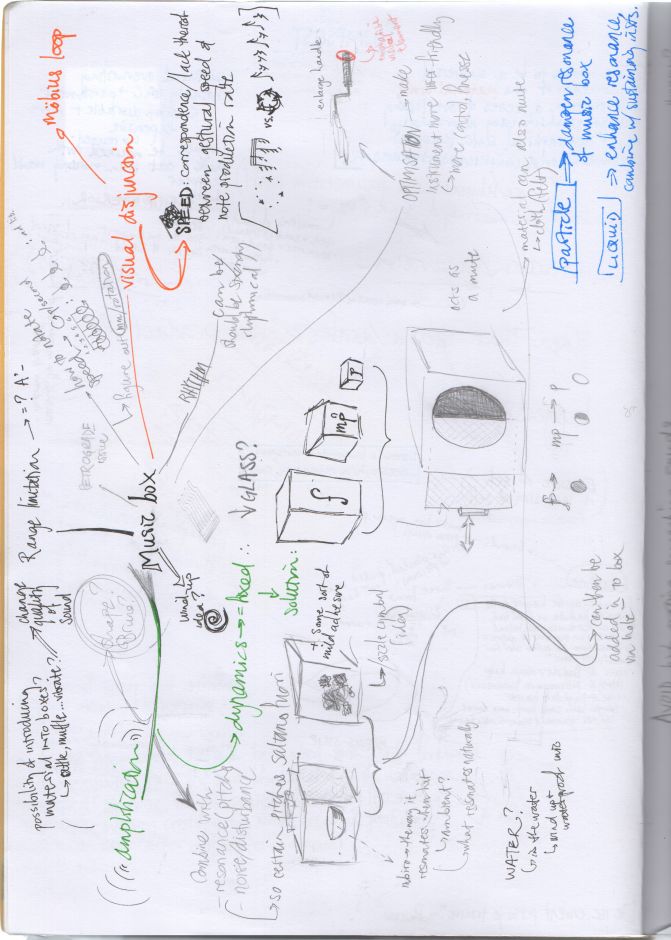 Music box
Range limitation → = ? A'-
RETROGRADE
issue
how to notate
speed
↳ figure out mm/rotation
visual disjunction
möbius loop
SPEED: correspondence/lack thereof
between gestural speed &
note production rate
vs.
RHYTHM
can be/
should be strongly
rhythmical
OPTIMISATION → make
instrument more user friendly
↳ more control, finesse
enlarge handle
→ material can also mute
↳ cloth (felt)
Particle ⇒ dampen resonance
of music box
LIQUID ⇒ enhance resonance,
combine w/ sustaining insts.
acts as
a mute
f → mp → p
f
mp
p
↓ GLASS?
wind up
idea?
dynamics → = fixed ∴
↓
solution:
+ some sort of
mild adhesive
size control
(idea)
→ can then be
added in to box
via hole
amplification
possibility of introducing
material into boxes?
↳ rattle, muffle... vibrate?
change
quality
of
sound
phase?
combines with
- resonance (pitch)
- noise/disturbance
↳ so certain pitches saltano fuori
mbira → the way it
resonates when hit
↳ ambient?
↳ what resonates naturally
WATER?
↳ in the water
↳ wind up +
waterproof into